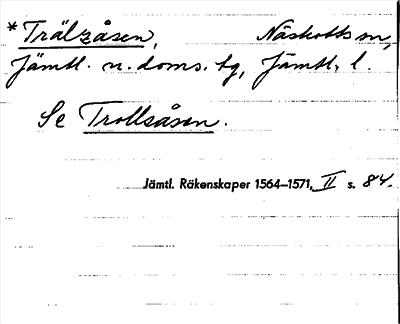 *Trälzåsen, Näskotts sn,
Jämtl. n. doms. tg, Jämtl. l.
Se Trollsåsen.
Jämtl. Räkenskaper 1564–1571, II s. 84.